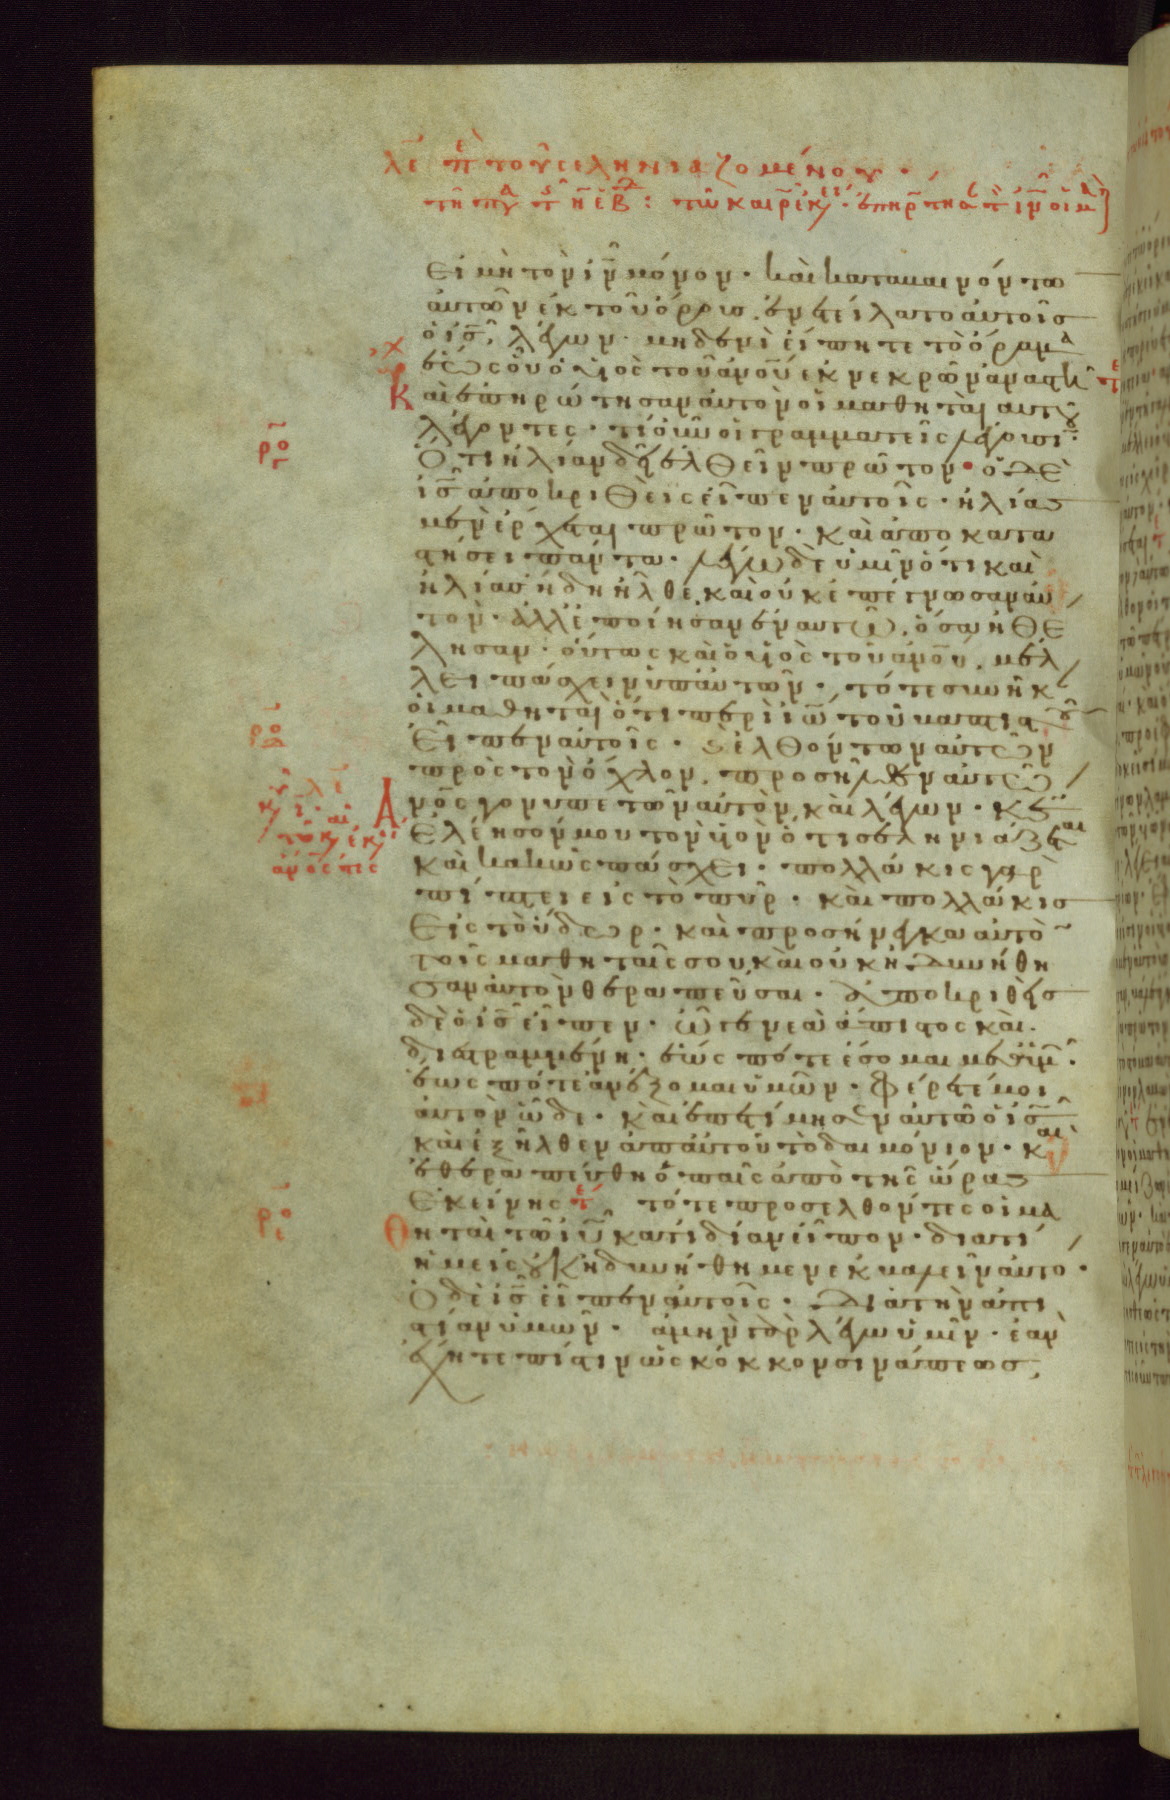 λε π τοῦ σεληνιαζομένου.
εἰ μὴ τὸν ιν μόνον. καὶ καταβαινόντω
αὐτῶν ἐκ τοῦ ὄρους. ἐνετείλατο αὐτοῖς
ὁ ις, λέγων. μηδενὶ εἴπητε τὸ ὅραμα
ἕως οὗ ὁ υἱὸς τοῦ ανου ἐκ νεκρῶν ἀναστῆ
Καὶ ἐπηρώτησαν αὐτὸν οἱ μαθηταὶ αυτου
λέγοντες. τί οὖν οἱ γραμματεῖς λέγουσι
ὅτι ηλίαν δεῖ ἐλθεῖν πρῶτον. ὁ δὲ
ις ἀποκριθεὶς εἶπεν αὐτοῖς. ηλίας
μὲν ἔρχεται πρῶτον. καὶ ἀποκατα
στήσει πάντα. λέγω δὲ ὑμῖν ὅτι καὶ
ηλίας ἤδη ἦλθε, καὶ οὐκ ἐπέγνωσαν αὐ
τὸν. ἀλλ' ἐποίησαν ἐν αυτῶ, ὅσα ἠθέ
λησαν. οὕτως καὶ ὁ υἱὸς τοῦ ανου, μέλ
λει πάσχειν ὑπ' αὐτῶν. τότε συνῆκ
οἱ μαθηταὶ ὅτι περὶ ιω τοῦ βαπτιστου
εἶπεν αὐτοῖς. ἐλθόντων αὐτῶν
πρὸς τὸν ὄχλον, προσῆλθεν αὐτῶ
Ανος γονυπετῶν αὐτὸν, καὶ λέγων. κε
ἐλέησόν μου τὸν υἱὸν ὅτι σεληνιάζεται
καὶ κακῶς πάσχει. πολλάκις γὰρ
πίπτει εἰς τὸ πῦρ. καὶ πολλάκις
εἰς τὸ ὕδωρ. καὶ προσήνεγκα αὐτὸ
τοῖς μαθηταῖς σου, καὶ οὐκ ἠδυνήθη
σαν αὐτὸν θεραπεῦσαι. ἀποκριθεὶς
δὲ ὁ ις εἶπεν. ὦ γενεὰ ἄπιστος καὶ
διεστραμμένη. ἕως πότε ἔσομαι μεθ' ὑμ.
ἕως πότε ἀνέξομαι ὑμῶν. φέρετέ μοι
αὐτὸν ὧδε. καὶ ἐπετίμησεν αὐτῶ ὁ ις
καὶ ἐξῆλθεν ἀπ' αὐτοῦ τὸ δαιμόνιον. και
ἐθεραπεύθη ὁ παῖς ἀπὸ τῆς ὥρας
ἐκείνης τότε προσελθόντες οἱ μα
θηταὶ τῶ ιυ κατιδίαν εἶπον. διατί
ἡμεῖς οὐκ ἠδυνήθημεν ἐκβαλεῖν αὐτό.
ὁ δὲ ις εἶπεν αὐτοῖς. διὰ τὴν ἀπι
στίαν ὑμῶν. ἀμὴν γὰρ λέγω ὑμῖν. ἐὰν
ἔχητε πίστιν ὡς κόκκον σινάπεως,